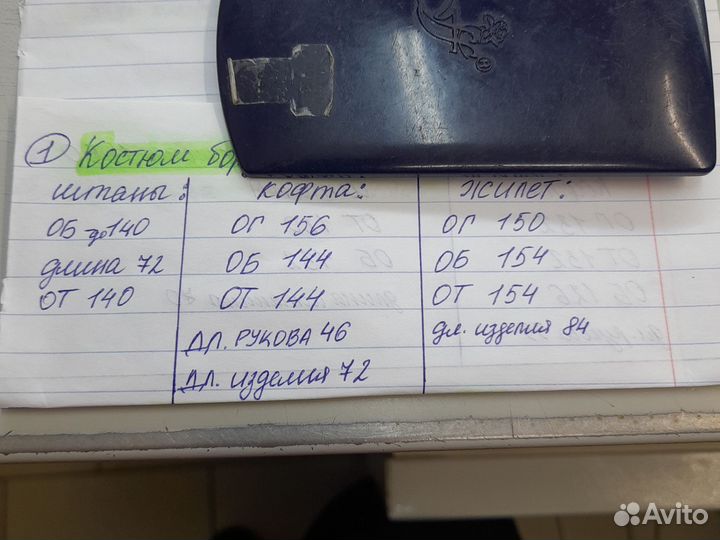 1 Костюм бор
штаны:
ОБ до 140
длина 72
ОТ 140
кофта:
ОГ 156
ОБ 144
ОТ 144
ДЛ. РУКОВА 46
ДЛ. изделия 72
жилет:
ОГ 150
ОБ 154
ОТ 154
дл. изделия 84
Avito